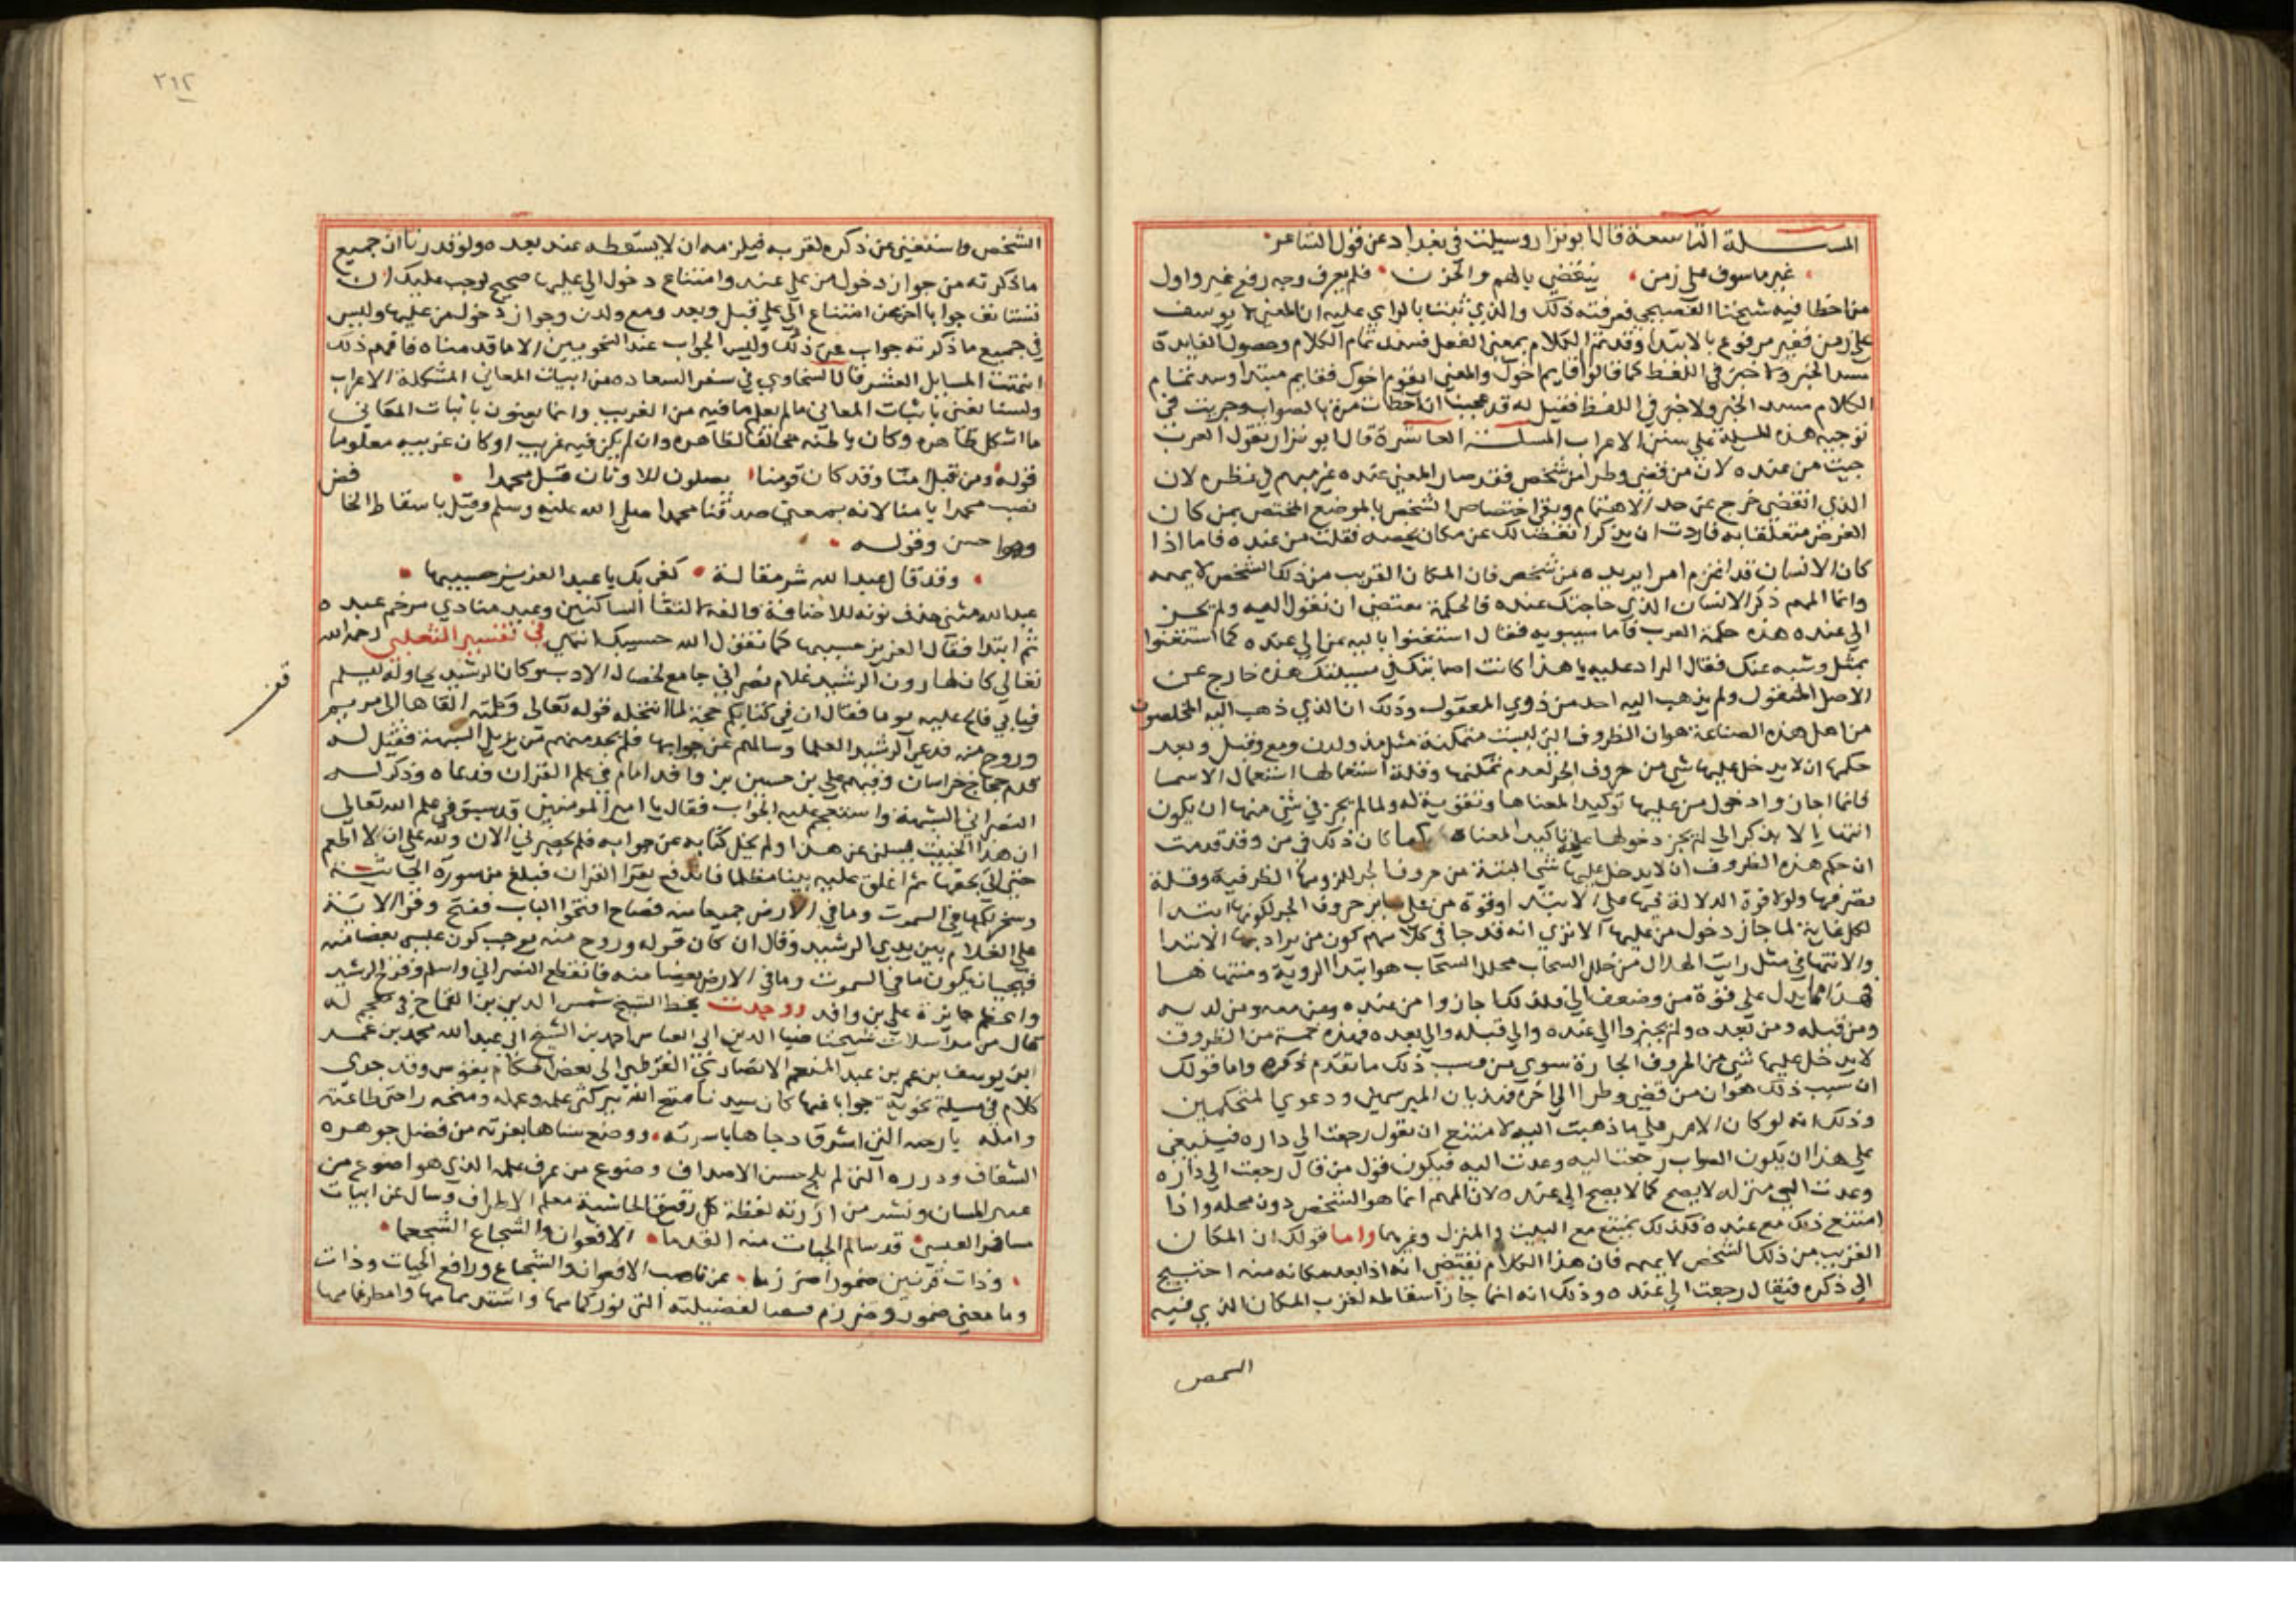 المسـلة التاسعة قال ابو نزار وسيلت في بغداد عن قول الشاعر
غير ماسوف على زمن ينقضي بالهم والحزن فلم يعرف وجه رفع غير واول
من اخطا فيه شيخنا الفصيحي فعرفته ذلك والذي ثبتنا بالراي عليه ان المعنى لا يوسف
على زمن فغير مرفوع بالابتدا وقد تم الكلام بمعنى الفعل فسد تمام الكلام وحصول الفايدة
مسد الخبر ولا خبر في اللفظ كما قالوا اقايم اخوك والمعنى ايقوم اخوك فقايم مبتدا وسد تمام
الكلام مسد الخبر ولا خبر في اللفظ فقيل له قد عجبنا ان اخطات مرة بالصواب وجريت في
توجيه هذه المسلة على سنن الاعراب المسلـة العاشرة قال ابو نزار تقول العرب
جيت من عنده لان من قضى وطرا من شخص فقد صار المعنى عنده غير مبهم في نظره لان
الذي انقضى خرج عن حد الاهتمام وبقي اختصاص الشخص بالموضع المختص بمن كان
الغرض متعلقا به فاردت ان يذكر انفصالك عن مكان يخصه فقلت من عنده فاما اذا
كان الانسان قد اعزم امرا يريده من شخص فان المكان القريب من ذلك الشخص لا يهمه
وانما المهم ذكر الانسان الذي حاجتك عنده فالحكمة تقتضي ان تقول اليه ولم يجز
الى عنده هذه حكمة العرب فاما سيبويه فقال استغنوا باليه عن الى عنده كما استغنوا
بمثل وشبه عنك فقال الراد عليه يا هذا كانت اصابتك في مسيلتك هذه خارج عن
الاصل المنقول ولم يذهب اليه احد من ذوي المعقول وذلك ان الذي ذهب اليه المخلصون
من اهل هذه الصناعة هو ان الظروف التي ليست متمكنة مثل مذ ولدن ومع وقبل وبعد
حكمها ان لا يدخل عليها شي من حروف الجر لعدم تمكنها وقلة استعمالها استعمال الاسما
فانما اجازوا دخول من عليها توكيدا لمعناها وتقوية له ولما لم يجز في شي منها ان يكون
انتها الا بذكر الى لم يجز دخولها عليه تاكيدا لمعناه كما كان ذلك في من وقد قدمت
ان حكم هذه الظروف ان لا يدخل عليها شي البتة من حروف الجر للزومها الظرفية وقلة
تصرفها ولولا قوة الدلالة فيها على الابتدا وقوة من على ساير حروف الجر لكونها ابتدا
لكل غاية لما جاز دخول من عليها الا ترى انه قد جا في كلامهم كون من يراد بها الابتدا
والانتها في مثل رايت الهلال من خلل السحاب محلل السحاب هو ابتدا الروية ومنتهاها
فهذا مما يدل على قوة من وضعف الى فلذلك اجازوا من عنده ومن معه ومن لديه
ومن قبله ومن بعده ولم يجيزوا الى عنده والى قبله والى بعده فهذه خمسة من الظروف
لا يدخل عليها شي من الحروف الجارة سوى من وسبب ذلك ما تقدم ذكره واما قولك
ان سبب ذلك هو ان من قضى وطرا الى اخره فهذيان المبرسمين ودعوى المتحكمين
وذلك انه لو كان الامر على ما ذهبت اليه لامتنع ان تقول رجعت الى داره فينبغي
على هذا ان يكون الصواب رجعت اليه وعدت اليه فيكون قول من قال رجعت الى داره
وعدت الى منزله لا يصح كما لا يصح الى عنده لان المهم انما هو الشخص دون محله واذا
امتنع ذلك مع عنده فكذلك يمتنع مع البيت والمنزل وغيرهما واما قولك ان المكان
القريب من ذلك الشخص لا يهمه فان هذا الكلام يقتضي انه اذا بعد مكانه منه احتيج
الى ذكره فيقال رجعت الى عنده وذلك انه انما جاز اسقاطه لقرب المكان الذي فيه
الشخص
٢١٢
الشخص واستغنى عن ذكره لقربه فيلزمه ان لا يسقطه عند بعده ولو قدرنا ان جميع
ما ذكرته من جواز دخول من على عند وامتناع دخول الى عليها صحيح لوجب عليك ان
تستانف جوابا اخر عن امتناع الى على قبل وبعد ومع ولدن وجواز دخول من عليها وليس
في جميع ما ذكرته جواب عن ذلك وليس الجواب عند النحويين الا ما قدمناه فافهم ذلك
انتهت المسايل العشر قال السخاوي في سفر السعادة من ابيات المعاني المشكلة الاعراب
ولسنا نعني بابيات المعاني ما لم يعلم ما فيه من الغريب وانما يعنون بابيات المعاني
ما اشكل ظاهره وكان باطنه مخالفا لظاهره وان لم يكن فيه غريب او كان غريبه معلوما
قوله ومن قبل امنا وقد كان قومنا يصلون للاوثان قبل محمدا
نصب محمدا بامنا لانه بمعنى صدقنا محمدا صلى الله عليه وسلم وقيل باسقاط الخا
فض
وهوا حسن وقوله
وقد قال عبدا لله شر مقالة كفى بك يا عبد العزيز حسيبها
عبدا لله مثنى حذف نونه للاضافة والفه لالتقا الساكنين وعبد منادي مرخم عبده
ثم ابتدا فقال العزيز حسيبها كما تقول الله حسيبك انتهى في تفسير الثعلبي رحمه الله
تعالى كان لهارون الرشيد غلام نصراني جامع لخصال الادب وكان الرشيد يحاوله ليسلم
فيابى فالح عليه يوما فقال ان في كتابكم حجة لما انتحله قوله تعالى وكلمته القاها الى مريم
وروح منه فدعى الرشيد العلما وسالهم عن جوابها فلم يجد منهم من يزيل الشبهة فقيل له
قدم حجاج خراسان وفيهم علي بن حسين بن واقد امام في علم القران فدعاه وذكر له
النصراني الشبهة واستعجم عليه الجواب فقال يا امير المومنين قد سبق في علم الله تعالى
ان هذا الخبيث يسلني عن هذا ولم يخل كتابه عن جوابه فلم يحضرني الان ولله علي ان لا اطعم
حتى اتي بحقها ثم اغلق عليه بيتا مظلما فاندفع يقرا القران فبلغ من سورة الجاثية
وسخر لكم ما في السموت وما في الارض جميعا منه فصاح افتحوا الباب ففتح وقرا الاية
على الغلام بين يدي الرشيد وقال ان كان قوله وروح منه يوجب كون عيسى بعضا منه
فيجب ان يكون ما في السموت وما في الارض بعضا منه فانقطع النصراني واسلم وفرح الرشيد
واعظم جايزة علي بن واقد ووجدت بخط الشيخ شمس الدين بن القماح في مجيميع له
قال من مراسلات شيخنا ضيا الدين ابي العباس احمد بن الشيخ ابي عبد الله محمد بن عمر
ابن يوسف بن عمر بن عبد المنعم الانصاري القرطبي الى بعض الحكام بقوص وقد جرى
كلام في مسيلة نحوية جوابا فيها كان سيدنا متع الله ببركتي علمه وعمله ومنحه راحتي طاعته
وامله يا رجه التي اشرقا دجاها باسرته ووضع سناها بغرته من فضل جوهره
الشفاف ودرره التي لم يلج حسن الاصداف وضوع من عرف علمه الذي هو اضوع من
المسان ونشر من اردته لفظة كل رقيق الحاشية معلم الاطراف وسال عن ابيات
مسافر العبسي قد سالم الحيات منه القدما الافعوان والشجاع الشجعما
وذات قرنين ضموزا ضرزما عن ناصب الافعوان والشجاع ورافع الحيات وذات
وما معنى ضموز وضرزم فسعيا لفضيلته التي نور كمامها واستدر غمامها وامطر غامها